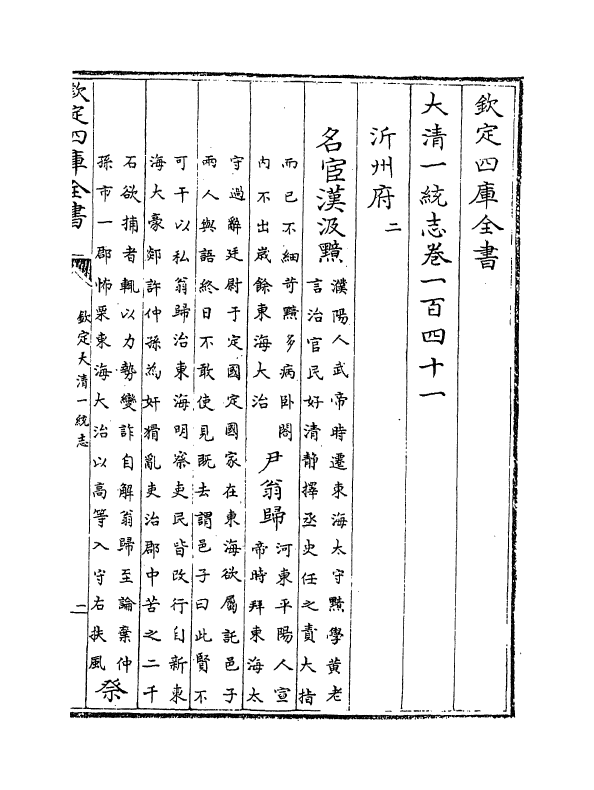 欽定四庫全書
大清一統志卷一百四十一
沂州府二
名宦漢汲黯
濮陽人武帝時遷東海太守黯學黃老
言治官民好清静擇丞史任之責大指
而已不細苛黯多病卧閤
内不出歲餘東海大治
尹翁歸
河東平陽人宣
帝時拜東海太
守過辭廷尉于定國定國家在東海欲屬託邑子
兩人與語終日不敢使見既去謂邑子曰此賢不
可干以私翁歸治東海明察吏民皆改行自新東
海大豪郯許仲孫為奸猾亂吏治郡中苦之二千
石欲捕者輒以力勢變詐自解翁歸至論棄仲
孫市一郡怖栗東海大治以高等入守右扶風
祭
欽定四庫全書
欽定大清一統志